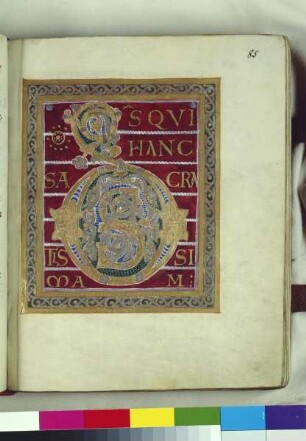 85
DS QVI
HANC
SACRA
TIS SI
MAM: